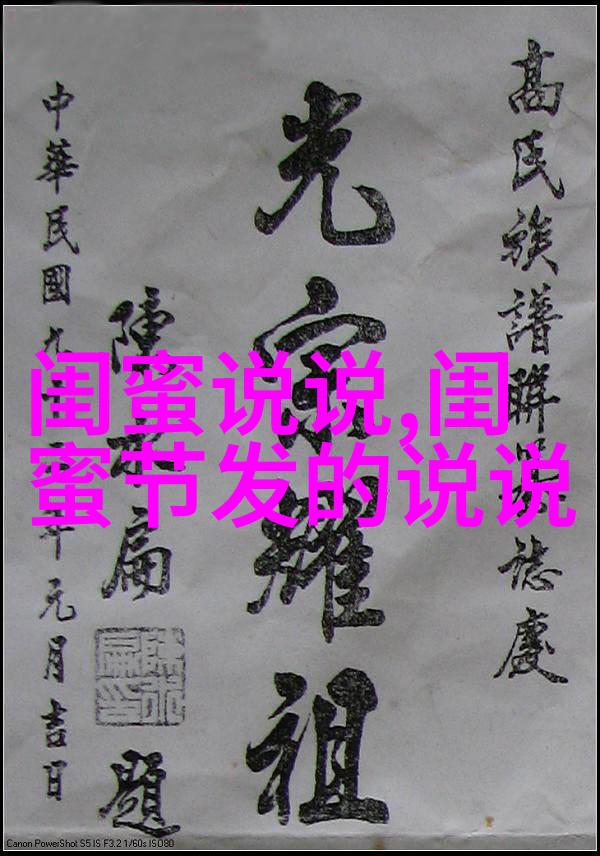 闺蜜说说,闺
蜜节发的说说
高氏族譜聯誌慶
光宗耀祖
陳水扁 題
中華民國九年元月吉日
Canon PowerShot S5 IS F3.2 1/60s ISO80